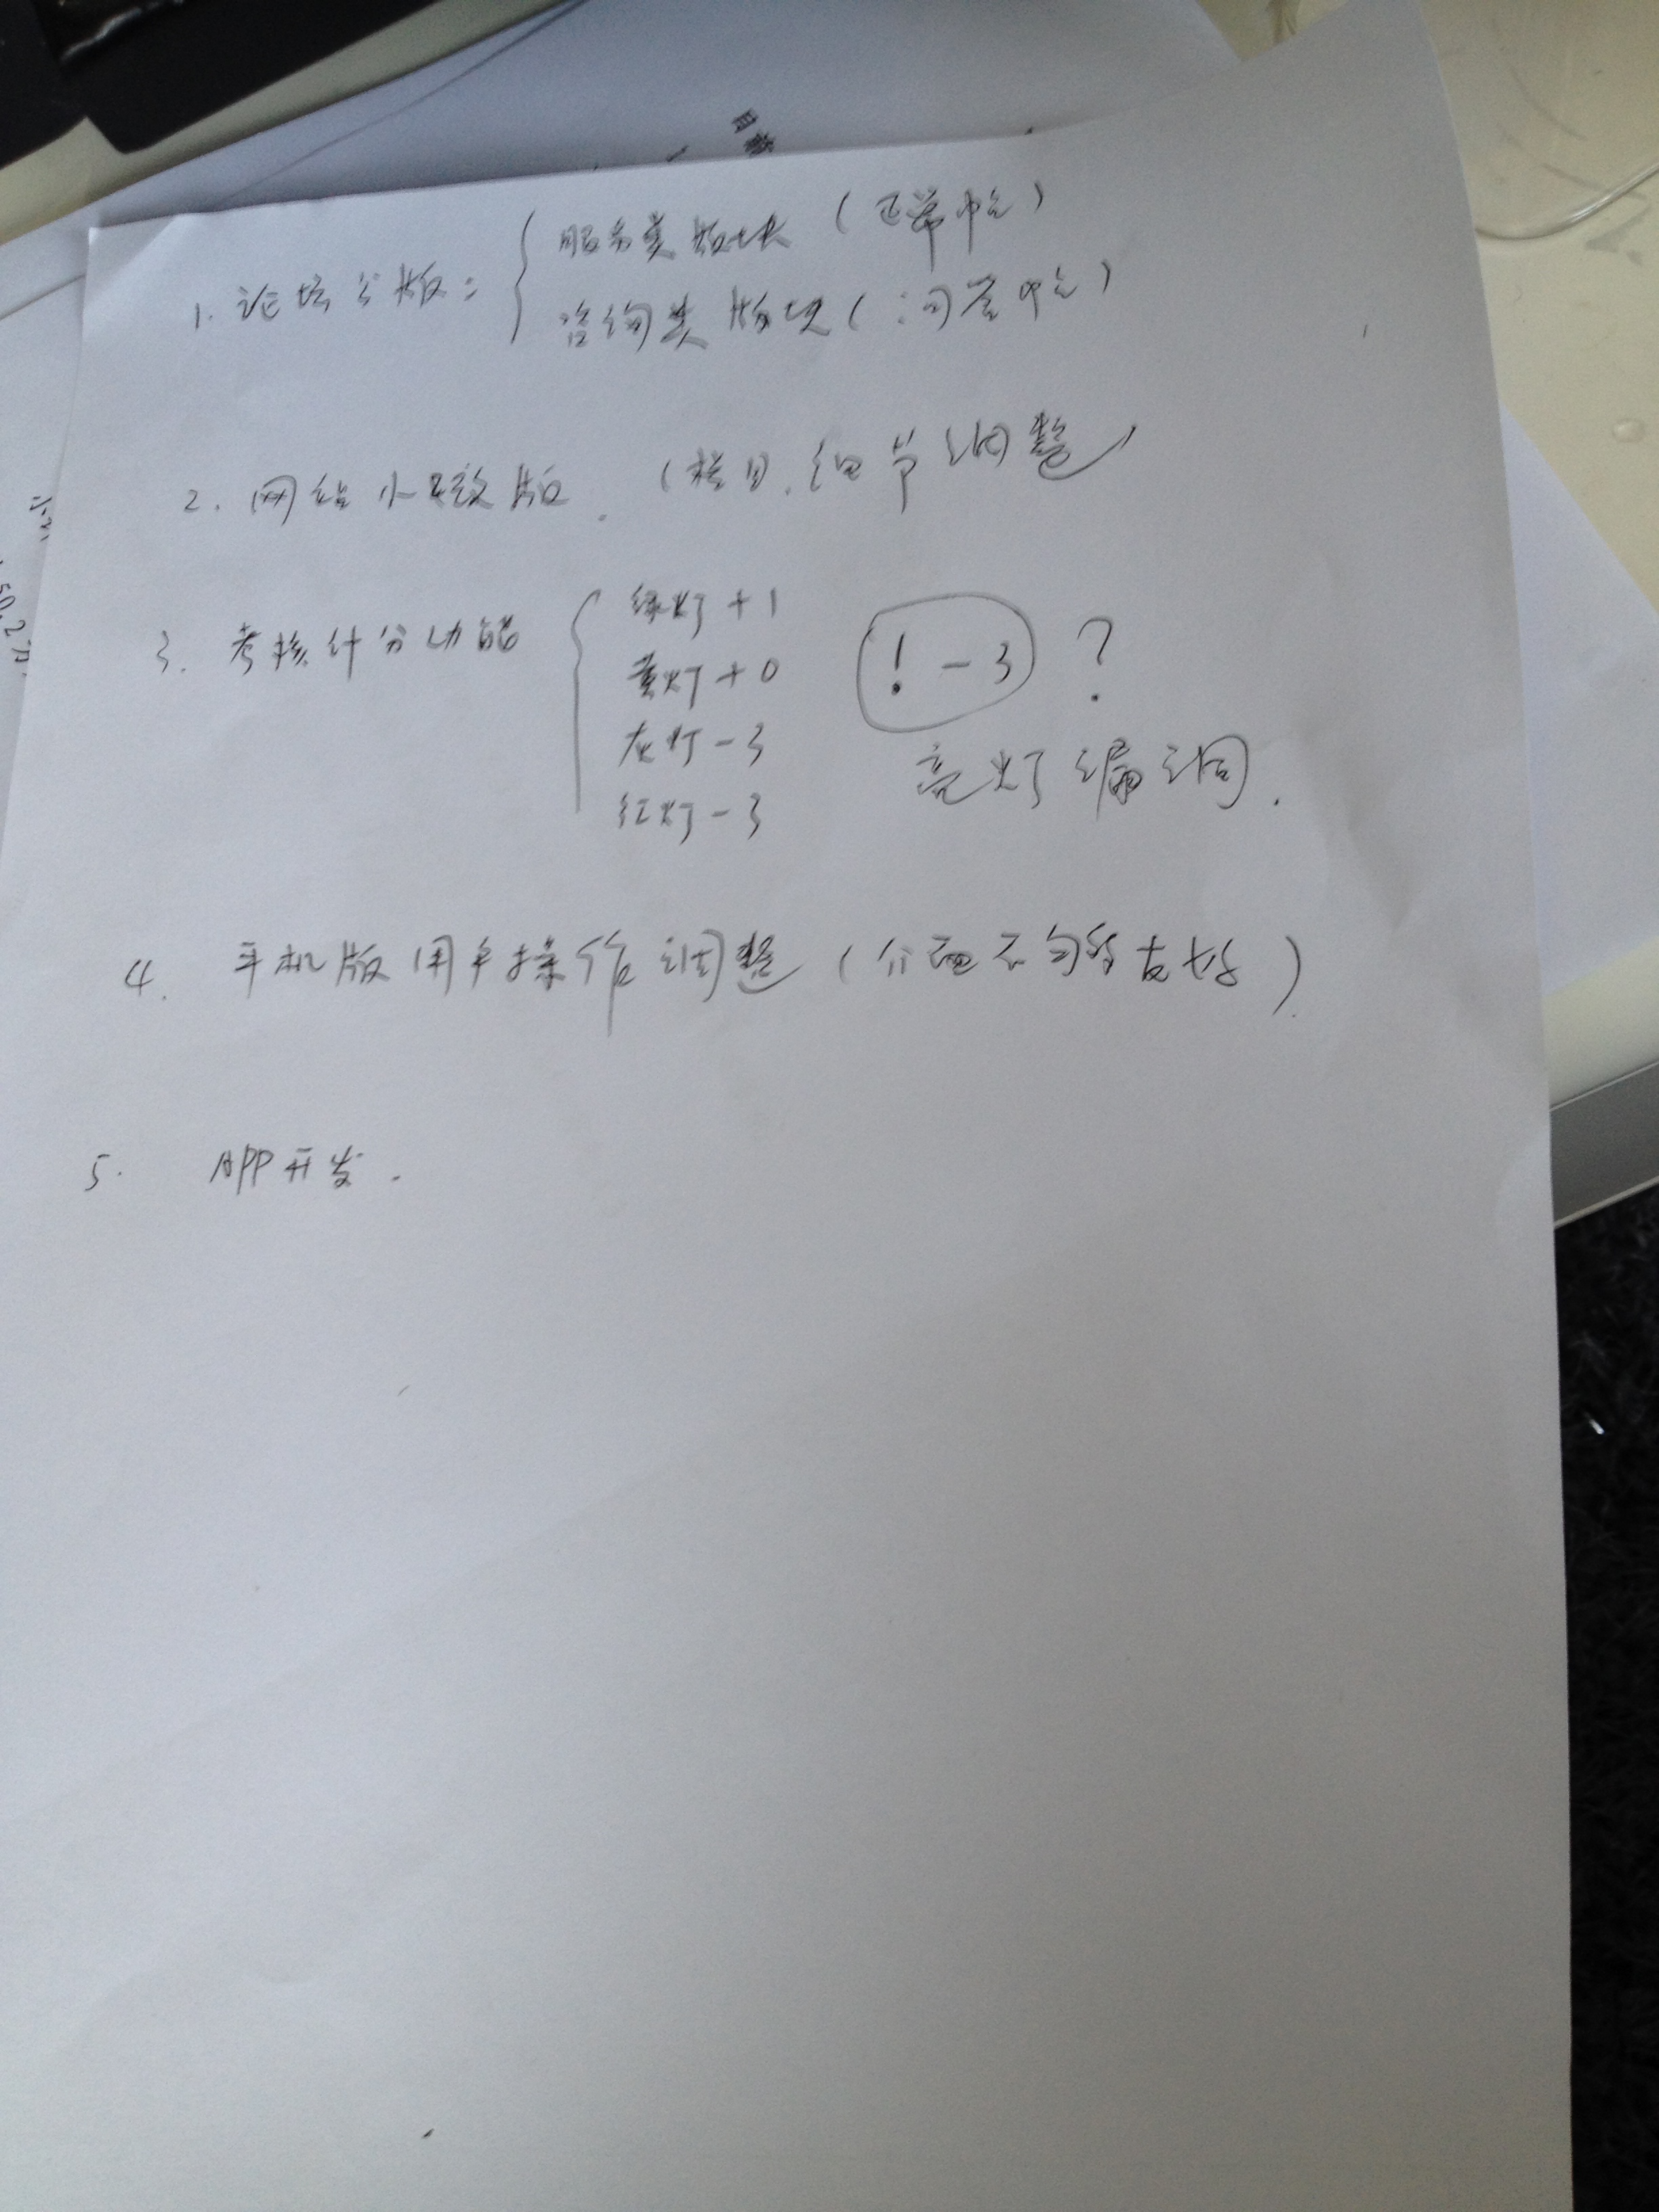 目前
1. 论坛分版: 服务类版块 (正常中心)
咨询类版块 (问答中心)
2. 网络问政版. (栏目.细节调整)
3. 考核计分功能
绿灯 +1
黄灯 +0
灰灯 -3
红灯 -3
! -3 ?
亮灯 调.
4. 手机版用户操作调整 (介面不够友好)
5. APP开发.